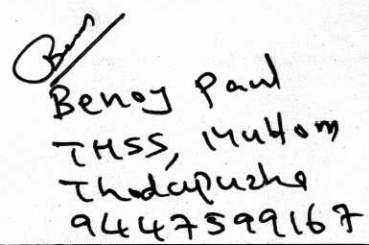 Benoy Paul
THSS, Muttom
Thodupuzha
9447599167